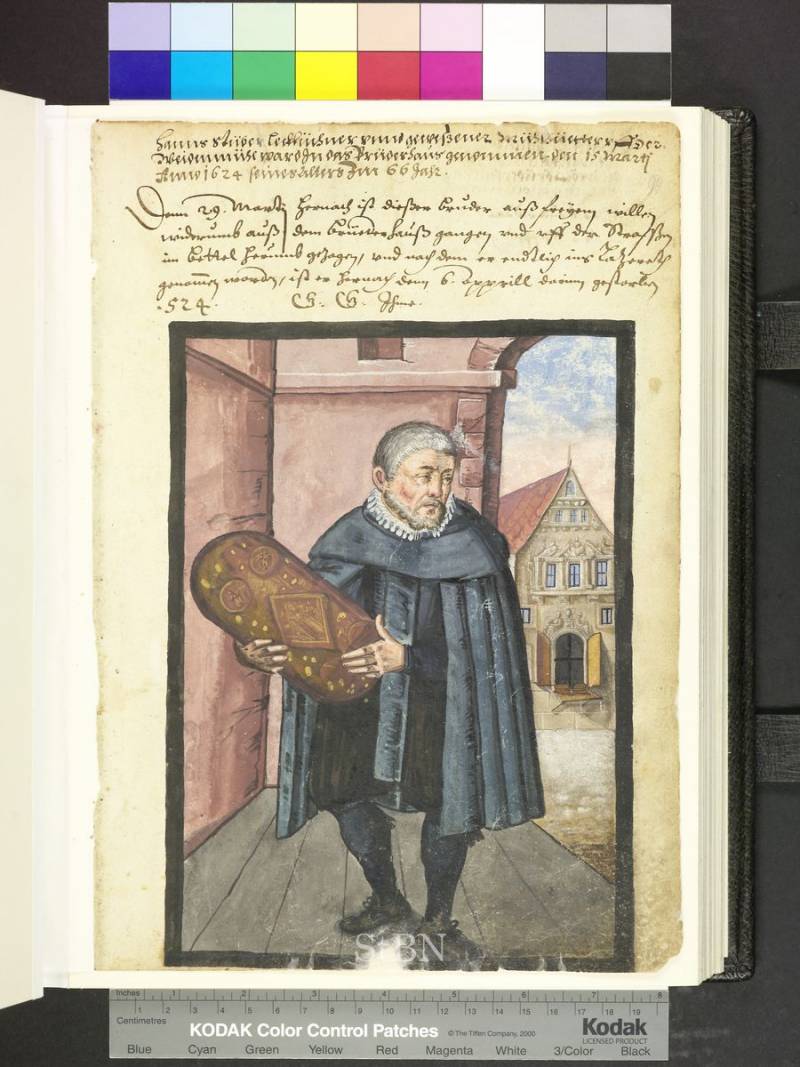 Hanns Stüber Lebküchner unnd gewesener
wardt in das Brüderhaus genommen den 15 Martj
Anno 1624 seines Alters Im 66 Jahr.
Denn 29. Martj hernach ist dießer bruder auß freyem willen
widerumb auß dem bruederhauß gangen vnd vff der Strassen
im bettel herumb gezogen, vnd nach dem er endtlich ins Lazareth
genomen worden, ist er hernach denn 6. Apprill darinn gestorben
.524. G. G. Ihme.
StBN
Inches 1 2 3 4 5 6 7 8
Centimetres 1 2 3 4 5 6 7 8 9 10 11 12 13 14 15 16 17 18 19
KODAK Color Control Patches © The Tiffen Company, 2000 Kodak
LICENSED PRODUCT
Blue Cyan Green Yellow Red Magenta White 3/Color Black